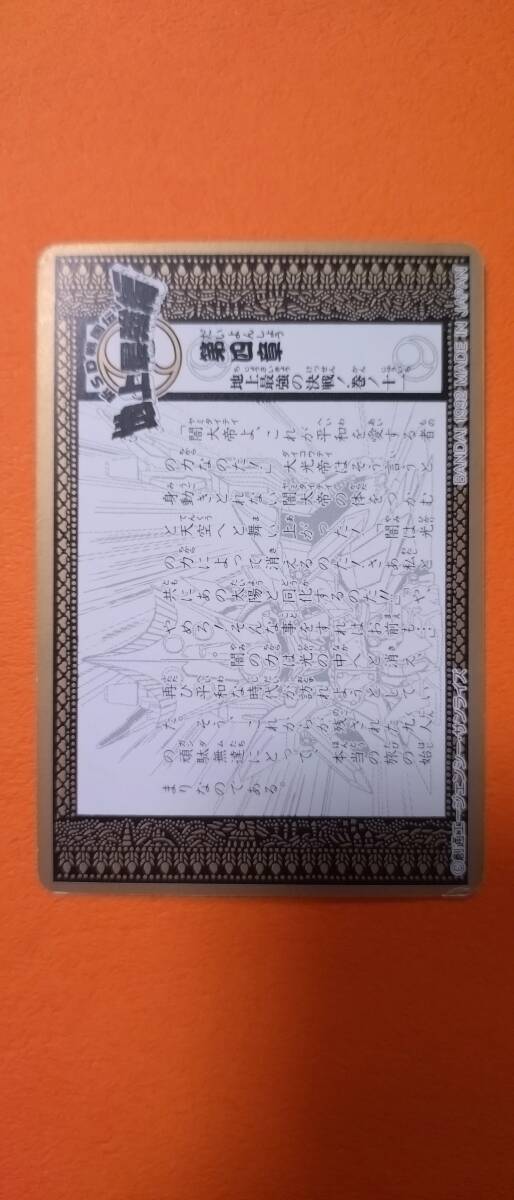 新SD戦国伝
地上最強編
第四章
だいよんしょう
地上最強の決戦ノ巻ノ十一
「闇大帝よ、これが平和を愛する者
の力なのだ!!」大光帝はそう言うと、
身動きとれない闇大帝の体をつかむ
と天空へと舞い上がった!「闇は光
の力によって消えるのだ!さあ私と
共にあの太陽と同化するのだ!!」「や
やめろ!そんな事をすればお前も…」
…。闇の力は光の中へと消え、
再び平和な時代が訪れようとしてい
た。そう、これからが残された九人
の頑駄無達にとって、本当の旅の始
まりなのである。
©創通エージェンシー・サンライズ
BANDAI 1992 MADE IN JAPAN